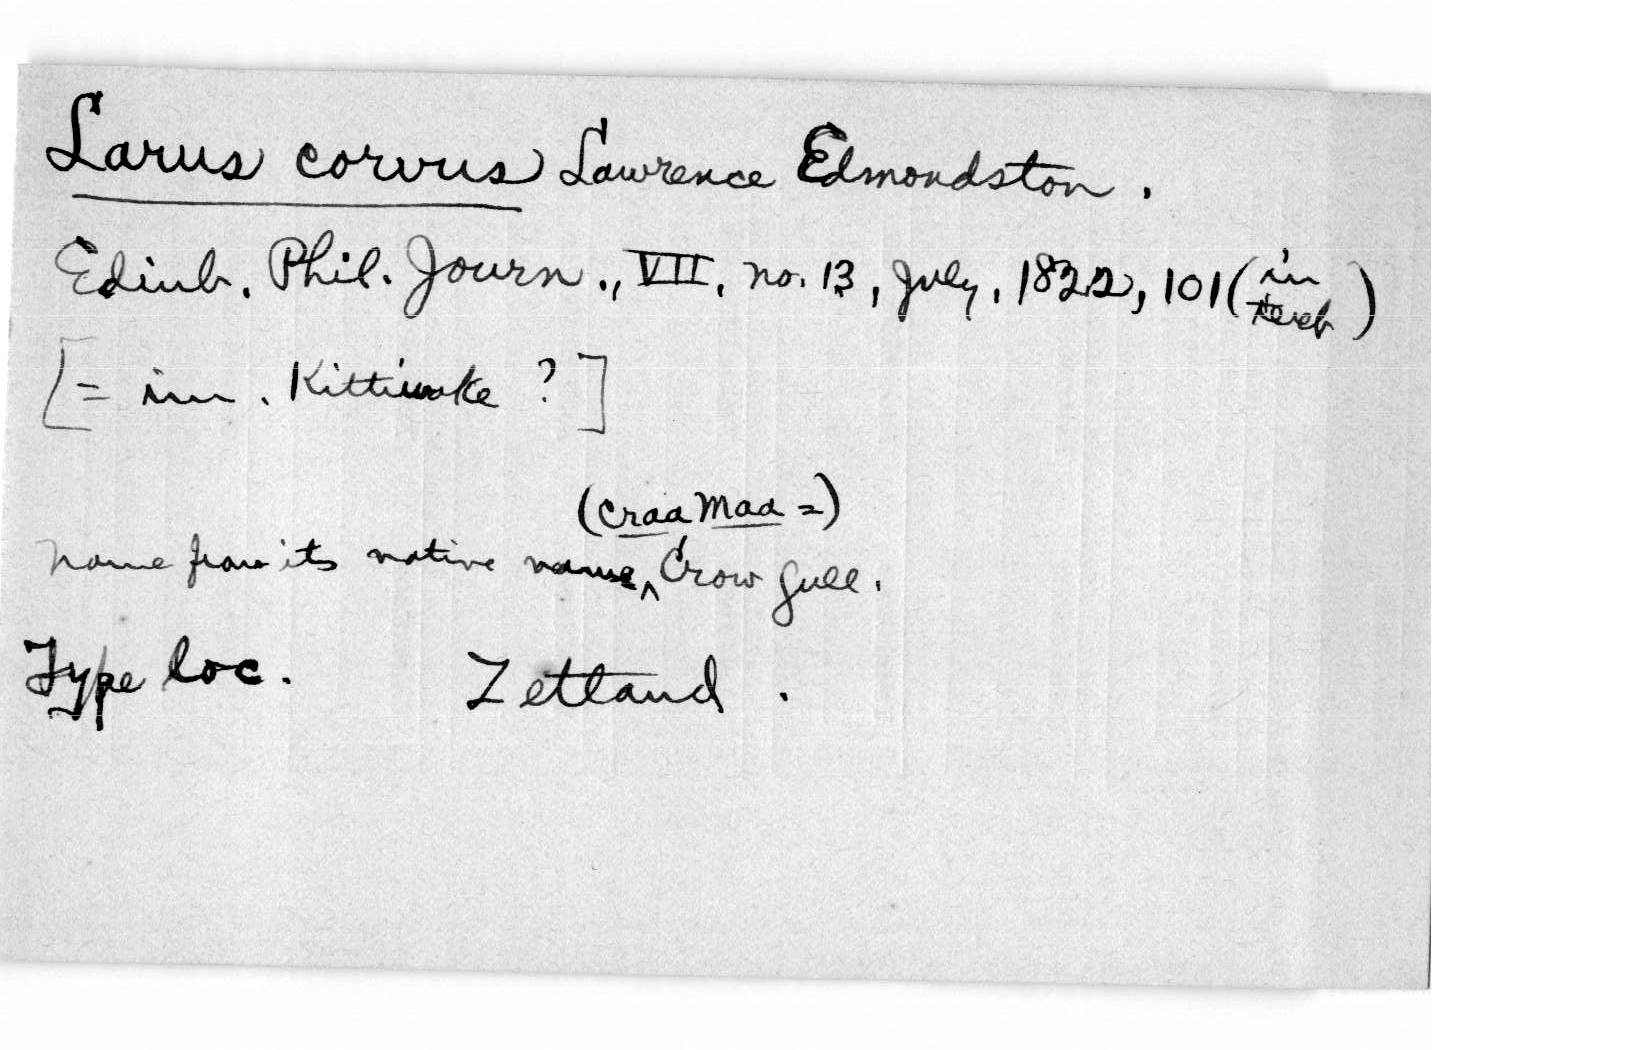 Larus corvus Lawrence Edmondston.
Edinb. Phil. Journ., VII, no. 13, July, 1822, 101 (in text)
[= im. Kittiwake ?]
(craa maa =)
name from its native name, ^ Crow Gull.
Type loc. Zetland.